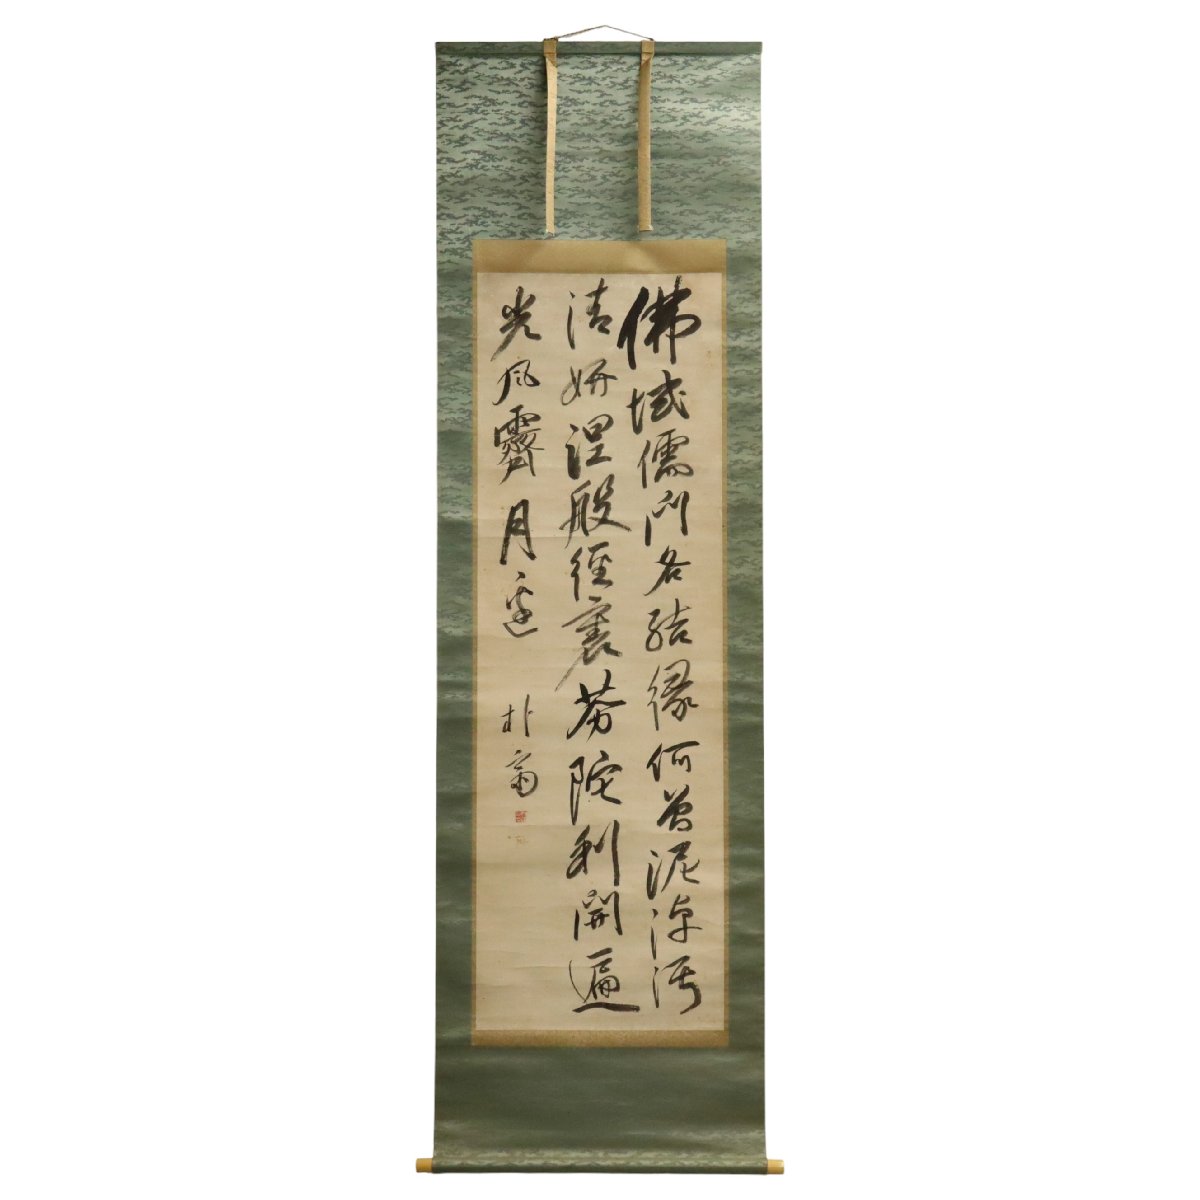 佛域儒門各結縁何曽泥滓汚
清妍涅般經裏芬陀利開遍
光風霽月邊
朴斎